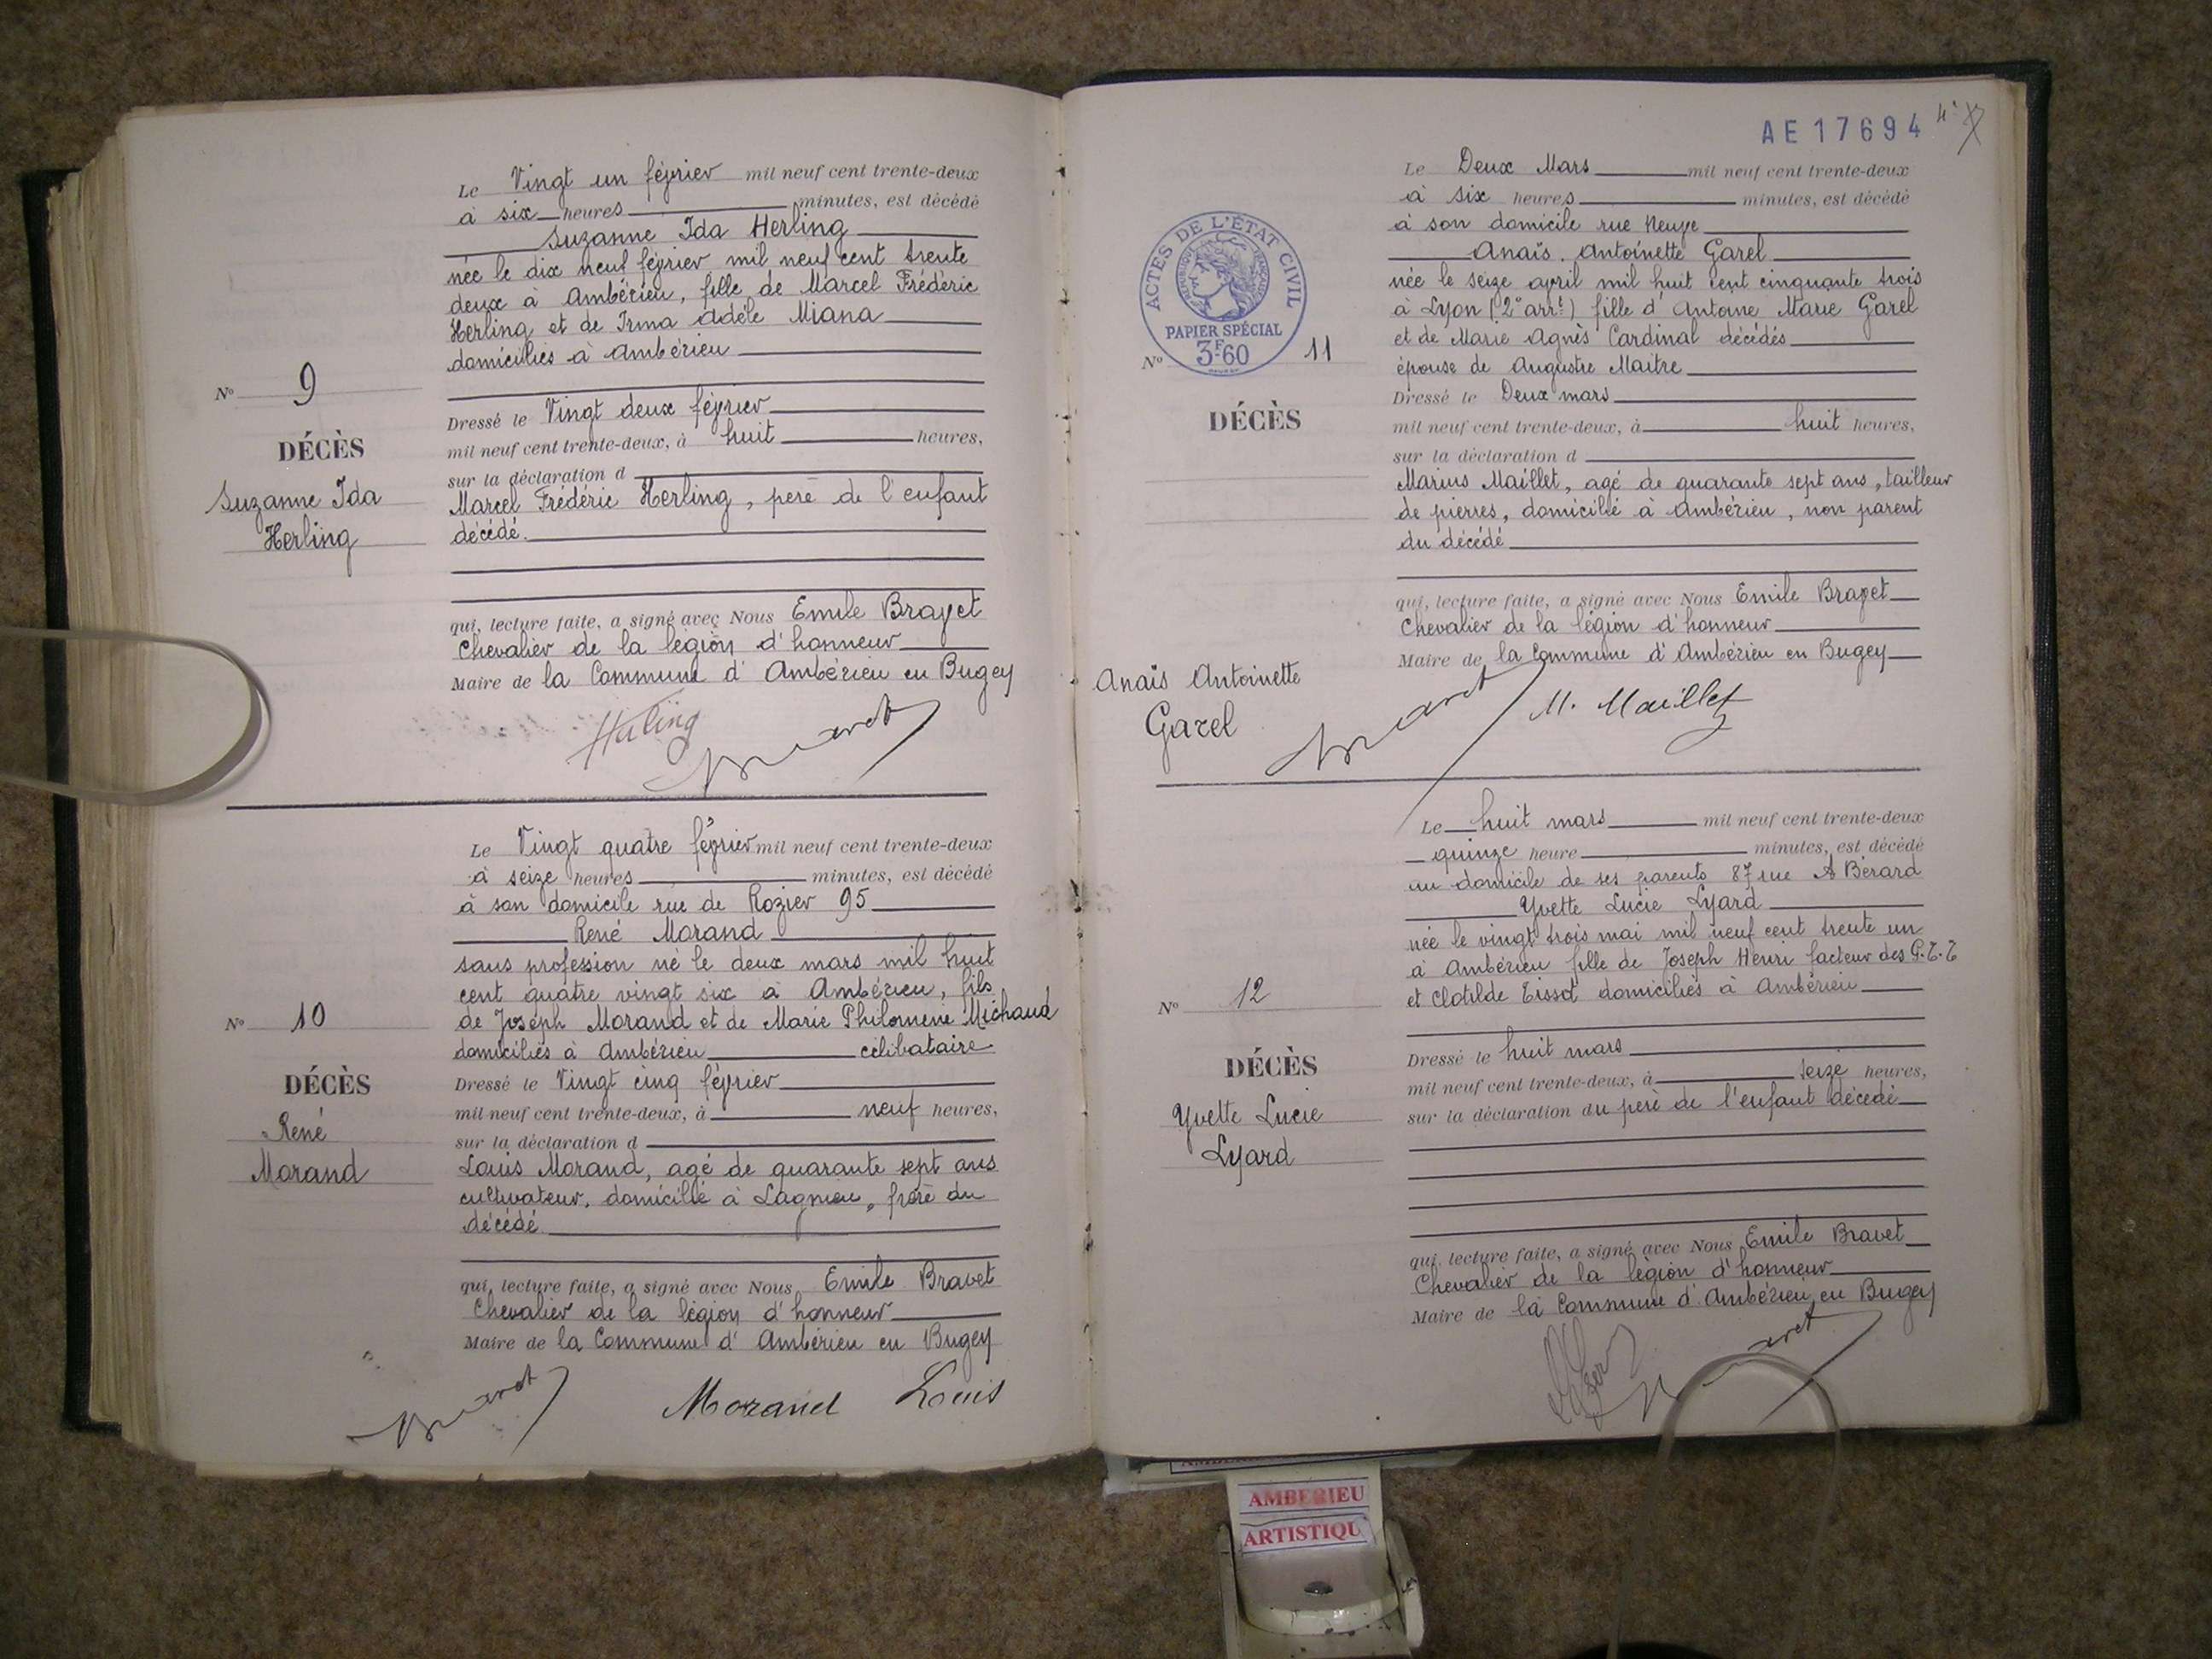 Le Vingt un février mil neuf cent trente-deux
à six heures minutes, est décédé
Suzanne Ida Herling
née le dix neuf février mil neuf cent trente
deux à Ambérieu, fille de Marcel Frédéric
Herling et de Irma Adèle Miana
domiciliés à Ambérieu
No 9
DÉCÈS
Suzanne Ida
Herling
Dressé le Vingt deux février
mil neuf cent trente-deux, à huit heures,
sur la déclaration d
Marcel Frédéric Herling, père de l'enfant
décédé.
qui, lecture faite, a signé avec Nous Emile Bravet
Chevalier de la légion d'honneur
Maire de la Commune d'Ambérieu en Bugey
Herling
Bravet
Le Vingt quatre février mil neuf cent trente-deux
à seize heures minutes, est décédé
à son domicile rue de Rozier 95
René Morand
sans profession né le deux mars mil huit
cent quatre vingt six à Ambérieu, fils
de Joseph Morand et de Marie Philomène Michaud
domiciliés à Ambérieu célibataire
No 10
DÉCÈS
René
Morand
Dressé le Vingt cinq février
mil neuf cent trente-deux, à neuf heures,
sur la déclaration d
Louis Morand, agé de quarante sept ans
cultivateur, domicilié à Lagnieu, frère du
décédé
qui, lecture faite, a signé avec Nous Emile Bravet
Chevalier de la légion d'honneur
Maire de la Commune d'Ambérieu en Bugey
Bravet
Morand Louis
AE 17694
Le Deux Mars mil neuf cent trente-deux
à six heures minutes, est décédé
à son domicile rue Neuve
Anaïs Antoinette Garel
née le seize avril mil huit cent cinquante trois
à Lyon (2e arrt) fille d'Antoine Marie Garel
et de Marie Agnès Cardinal décédés
épouse de Augustre Maitre
ACTES DE L'ÉTAT CIVIL
RÉPUBLIQUE FRANÇAISE
PAPIER SPÉCIAL
3F60
No 11
DÉCÈS
Anaïs Antoinette
Garel
Dressé le Deux mars
mil neuf cent trente-deux, à huit heures,
sur la déclaration d
Marius Maillet, agé de quarante sept ans, tailleur
de pierres, domicilié à Ambérieu, non parent
du décédé
qui, lecture faite, a signé avec Nous Emile Bravet
Chevalier de la légion d'honneur
Maire de la Commune d'Ambérieu en Bugey
Bravet
M. Maillet
Le huit mars mil neuf cent trente-deux
quinze heure minutes, est décédé
au domicile de ses parents 87 rue A Bérard
Yvette Lucie Lyard
née le vingt trois mai mil neuf cent trente un
à Ambérieu fille de Joseph Henri facteur des P.T.T
et Clotilde Tissot domiciliés à Ambérieu
No 12
DÉCÈS
Yvette Lucie
Lyard
Dressé le huit mars
mil neuf cent trente-deux, à seize heures,
sur la déclaration du père de l'enfant décédé
qui, lecture faite, a signé avec Nous Emile Bravet
Chevalier de la légion d'honneur
Maire de la Commune d'Ambérieu en Bugey
Bravet
AMBERIEU
ARTISTIQU